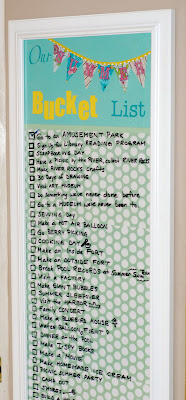 Our
Bucket List
Go to an AMUSEMENT PARK
Sign up for Library READING PROGRAM
SLEEPOVER DAY
Have a Picnic by the RIVER, collect RIVER ROCKS
Make RIVER ROCKS crafts
30 Days of DRAWING
Visit ART MUSEUM
Do something we've never done before
Go to a MUSEUM we've never been to
SEWING DAY
Make a HOT AIR BALLOON
Go BERRY PICKING
COOKING DAY
Make an Inside FORT
Make an OUTSIDE FORT
Break POOL RECORDS at Summer
Visit a FACTORY
Make GIANT BUBBLES
SUMMER SLEEPOVER
Visit the HARBOR
Family CONCERT
Make a BUG HOUSE
WATER BALLOON FIGHT
DINNER at the Pool
Make
Make a MOVIE
Make HOMEMADE ICE CREAM
PICNIC SUMMER PARTY
CAMP OUT
S'MORES
Build a